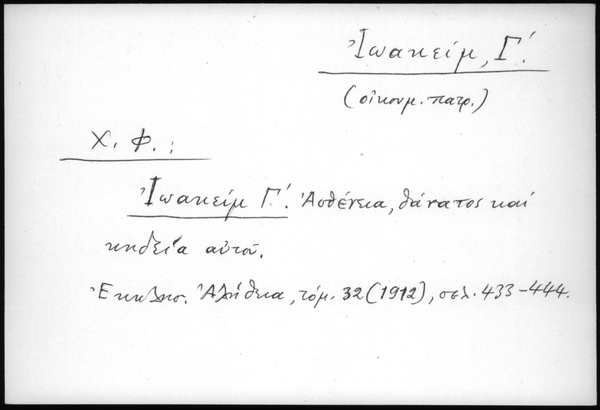 Ἰωακείμ, Γ΄.
(οἰκουμ. πατρ.)
Χ. Φ. :
Ἰωακείμ Γ΄. Ἀσθένεια, θάνατος καί
κηδεία αὐτοῦ.
Ἐκκλησ. Ἀλήθεια, τόμ. 32 (1912), σελ. 433-444.